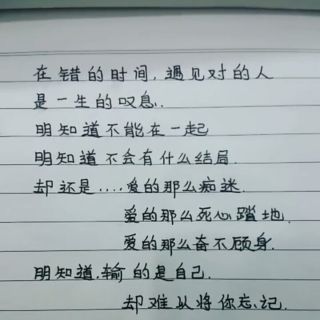 在错的时间，遇见对的人
是一生的叹息.
明知道不能在一起
明知道不会有什么结局.
却还是....爱的那么痴迷.
爱的那么死心蹋地.
爱的那么奋不顾身.
明知道.输的是自己.
却难以将你忘记.